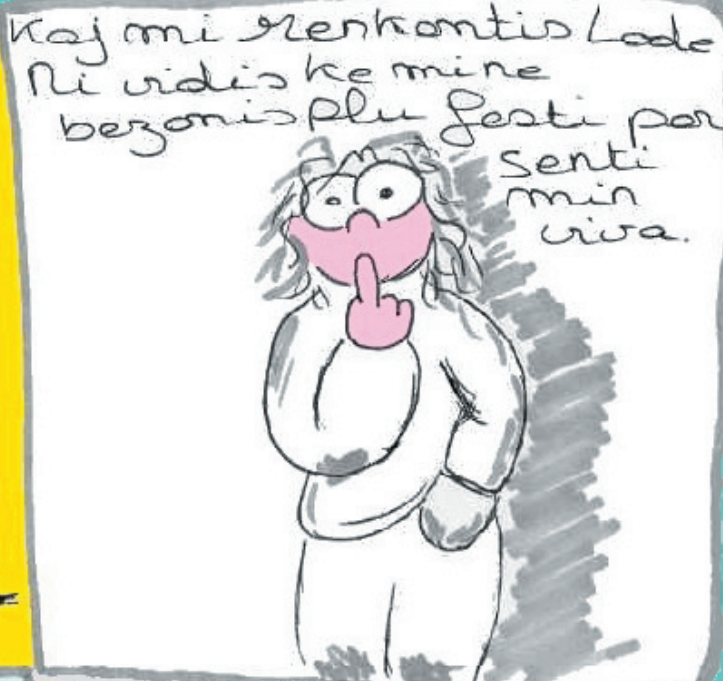 Kaj mi renkontis Lode
Ni vidis ke mi ne
bezonis plu festi por
senti
min
viva.